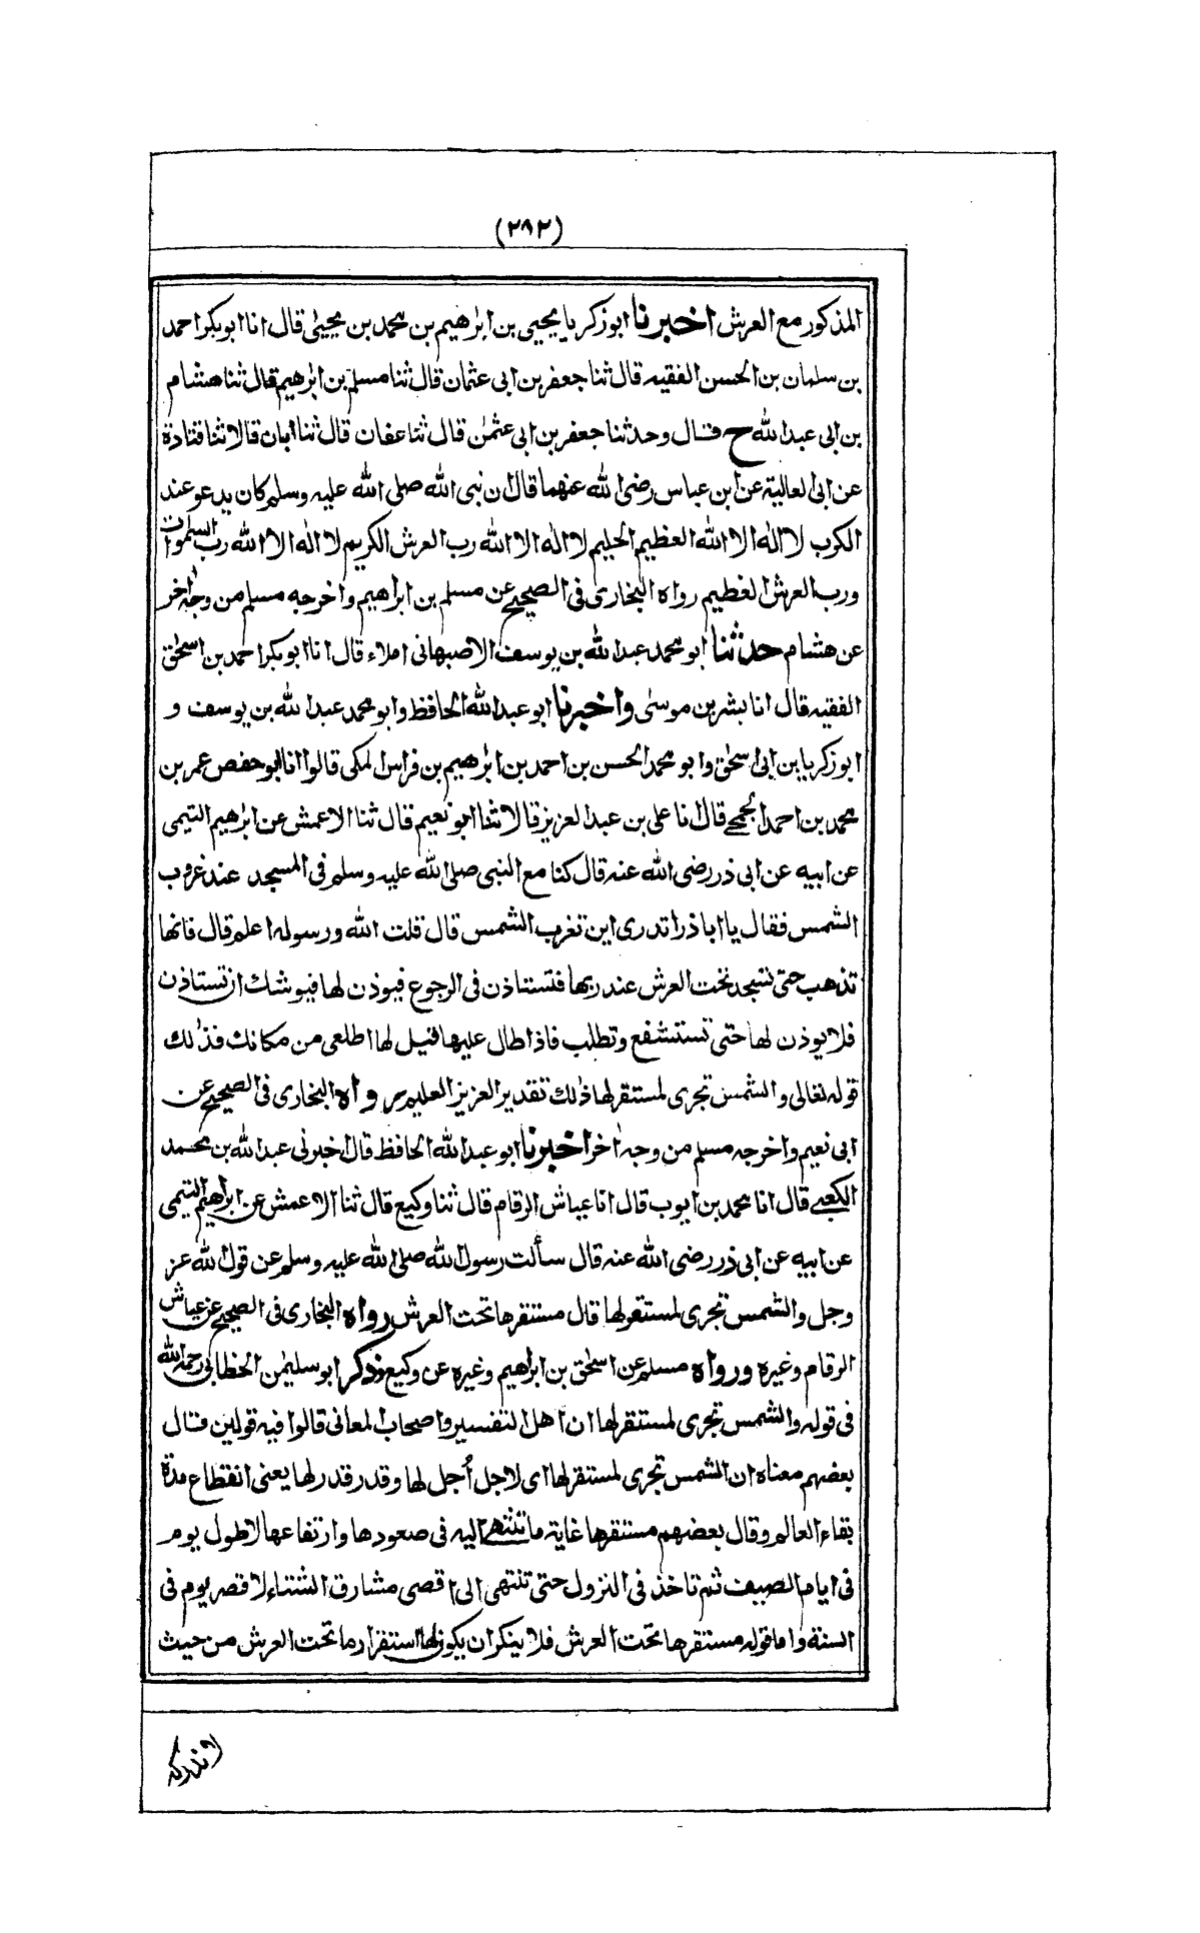 (٢٩٢)
المذكور مع العرش اخبرنا ابو زكريا يحيى بن ابرٰهيم بن محمد بن يحيىٰ قال انا ابو بكر احمد
بن سلمان بن الحسن الفقيه قال ثنا جعفر بن ابى عثمان قال ثنا مسلم بن ابرٰهيم قال ثنا هشام
بن ابى عبد الله ح قال وحدثنا جعفر بن ابى عثمٰن قال ثنا عفان قال ثنا ابان قالا ثنا قتادة
عن ابى العالية عن ابن عباس رضى الله عنهما قال ان نبى الله صلى الله عليه وسلم كان يدعو عند
الكرب لا الٰه الا الله العظيم الحليم لا اله الا الله رب العرش الكريم لا اله الا الله رب السمٰوات
ورب العرش العظيم رواه البخارى فى الصحيح عن مسلم بن ابراهيم واخرجه مسلم من وجه اٰخر
عن هشام حدثنا ابو محمد عبد الله بن يوسف الاصبهانى املاء قال انا ابو بكر احمد بن اسحٰق
الفقيه قال انا بشر بن موسىٰ واخبرنا ابو عبد الله الحافظ وابو محمد عبد الله بن يوسف و
ابو زكريا بن ابى اسحٰق وابو محمد الحسن بن احمد بن ابرٰهيم بن فراس المكى قالوا انا ابو حفص عمر بن
محمد بن احمد الجمحى قال انا على بن عبد العزيز قالا ثنا ابو نعيم قال ثنا الاعمش عن ابرٰهيم التيمى
عن ابيه عن ابى ذر رضى الله عنه قال كنا مع النبى صلى الله عليه وسلم فى المسجد عند غروب
الشمس فقال يا ابا ذر اتدرى اين تغرب الشمس قال قلت الله ورسوله اعلم قال فانها
تذهب حتى تسجد تحت العرش عند ربها فتستاذن فى الرجوع فيوذن لها فيوشك ان تستاذن
فلا يوذن لها حتى تستشفع وتطلب فاذا طال عليها قيل لها اطلعى من مكانك فذٰلك
قوله تعالى والشمس تجرى لمستقر لها ذٰلك تقدير العزيز العليم رواه البخارى فى الصحيح عن
ابى نعيم واخرجه مسلم من وجه اٰخر اخبرنا ابو عبد الله الحافظ قال اخبرنى عبد الله بن محمد
الكعبى قال انا محمد بن ايوب قال انا عياش الرقام قال ثنا وكيع قال ثنا الاعمش عن ابراهيم التيمى
عن ابيه عن ابى ذر رضى الله عنه قال سألت رسول الله صلى الله عليه وسلم عن قول الله عز
وجل والشمس تجرى لمستقر لها قال مستقرها تحت العرش رواه البخارى فى الصحيح عن عياش
الرقام وغيره ورواه مسلم عن اسحٰق بن ابراهيم وغيره عن وكيع وذكر ابو سليمٰن الخطابى رحمه الله
فى قوله والشمس تجرى لمستقر لها ان اهل التفسير واصحاب المعانى قالوا فيه قولين قال
بعضهم معناه ان الشمس تجرى لمستقر لها اى لاجل أُجل لها وقدر قدر لها يعنى انقطاع مدة
بقاء العالم وقال بعضهم مستقرها غاية ما تنتهى اليه فى صعودها وارتفاعها لاطول يوم
فى ايام الصيف ثم تاخذ فى النزول حتى تنتهى الى اقصى مشارق الشتاء لاقصر يوم فى
السنة واما قوله مستقرها تحت العرش فلا ينكر ان يكون لها استقرار ما تحت العرش من حيث
لا ندركه